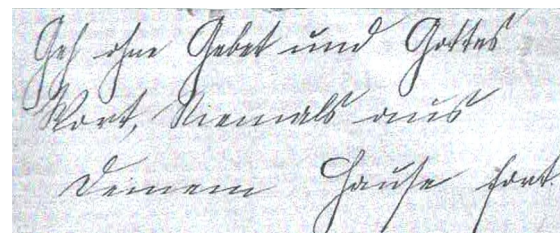 Geh ohne Gebet und Gottes
Wort, Niemals aus
Deinem Hause fort